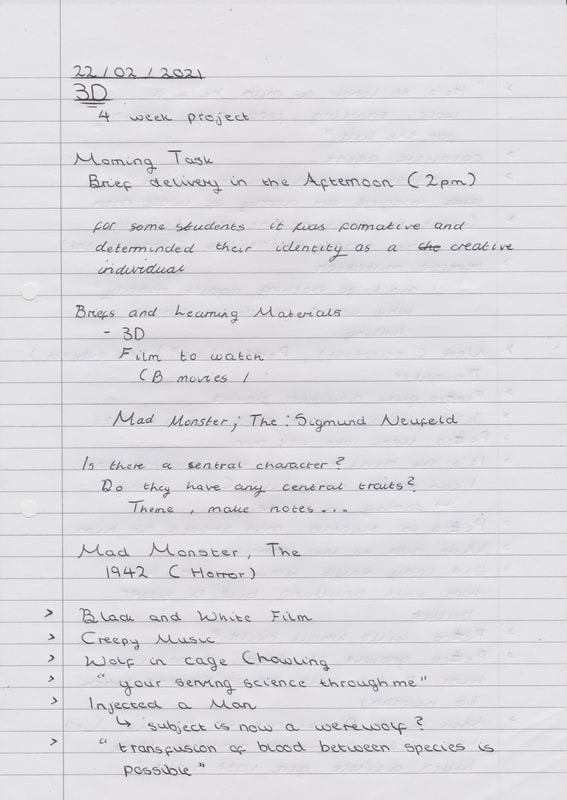 22/02/2021
3D
4 week project
Morning Task
Brief delivery in the Afternoon (2pm)
for some students it was formative and
determinded their identity as a the creative
individual
Briefs and Learning Materials
- 3D
Film to watch
(B movies /
Mad Monster, The : Sigmund Neufeld
Is there a sentral character?
Do they have any central traits?
Theme, make notes...
Mad Monster, The
1942 (Horror)
> Black and White Film
> Creepy Music
> Wolf in cage (howling
> "your serving science through me"
> Injected a Man
↳ subject is now a werewolf?
> "transfusion of blood between species is
possible"